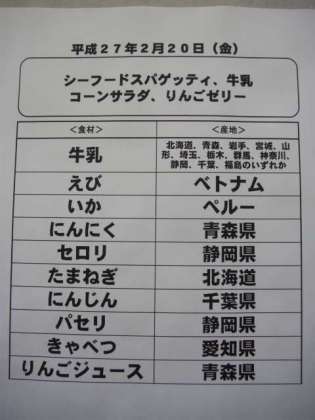 平成２７年２月２０日（金）
シーフードスパゲッティ、牛乳
コーンサラダ、りんごゼリー
＜食材＞ ＜産地＞
牛乳 北海道、青森、岩手、宮城、山
形、埼玉、栃木、群馬、神奈川、
静岡、千葉、福島のいずれか
えび ベトナム
いか ペルー
にんにく 青森県
セロリ 静岡県
たまねぎ 北海道
にんじん 千葉県
パセリ 静岡県
きゃべつ 愛知県
りんごジュース 青森県